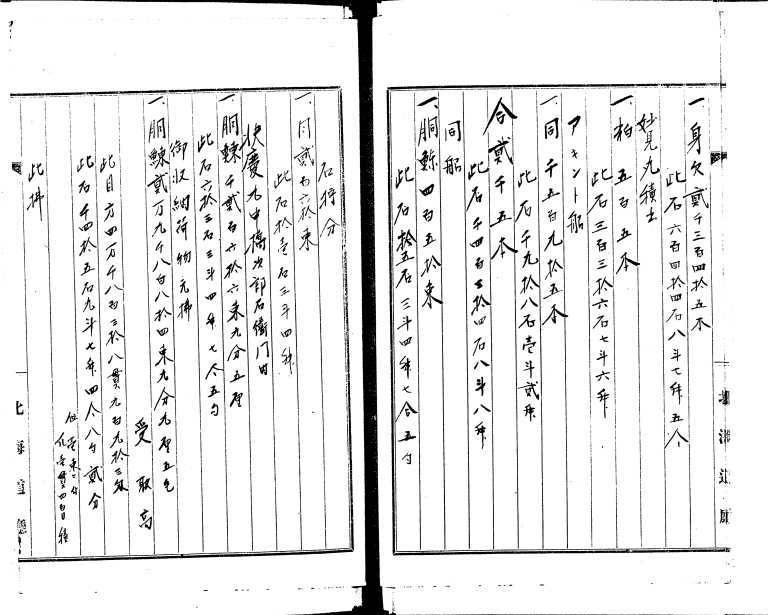 一、身欠貳千三百四拾五本
此石六百四拾四石八斗七升五合
妙見丸積書
一、粕五百五本
此石三百三拾六石七斗六升
アキント船
一、同千五百九拾五本
此石千九拾八石壱斗貳升
合貳千五本
此石千四百三拾四石八斗八升
同船
一、胴鯡四百五拾束
此石拾五石三斗四升七合五勺
石狩分
一、同貳百六拾束
此石拾壱石三斗四升
快慶丸中橋次郎右衛門由
一、胴鯡千貳百六拾六束九分五厘
此石六拾三石三斗四升七合五勺
御収納荷物元拂
一、胴鯡貳万九千八百八拾四束九分九厘五毛
受取高
此目方四万千八百三拾八貫九百九拾三匁
此石千四拾五石九斗七升四合八勺貳分
但壱束ニ付
化壱貫四百積
此拂
北海道廳